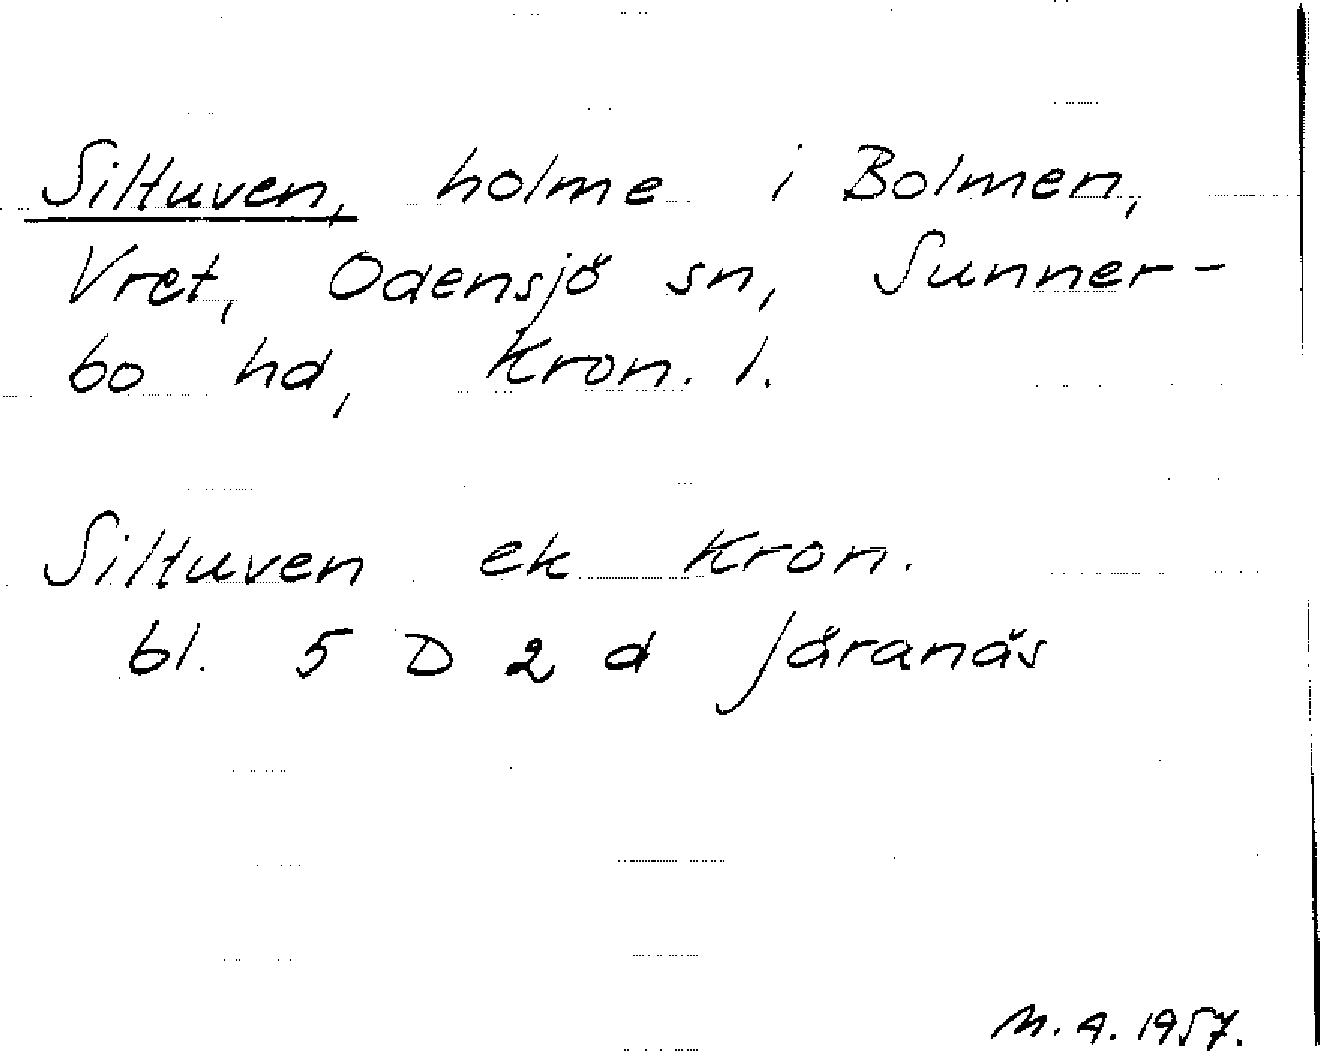 Siltuven, holme i Bolmen,
Vret, Odensjö sn, Sunner-
bo hd, Kron. l.
Siltuven ek Kron.
bl. 5 D 2 d Järanäs
M.A. 1957.